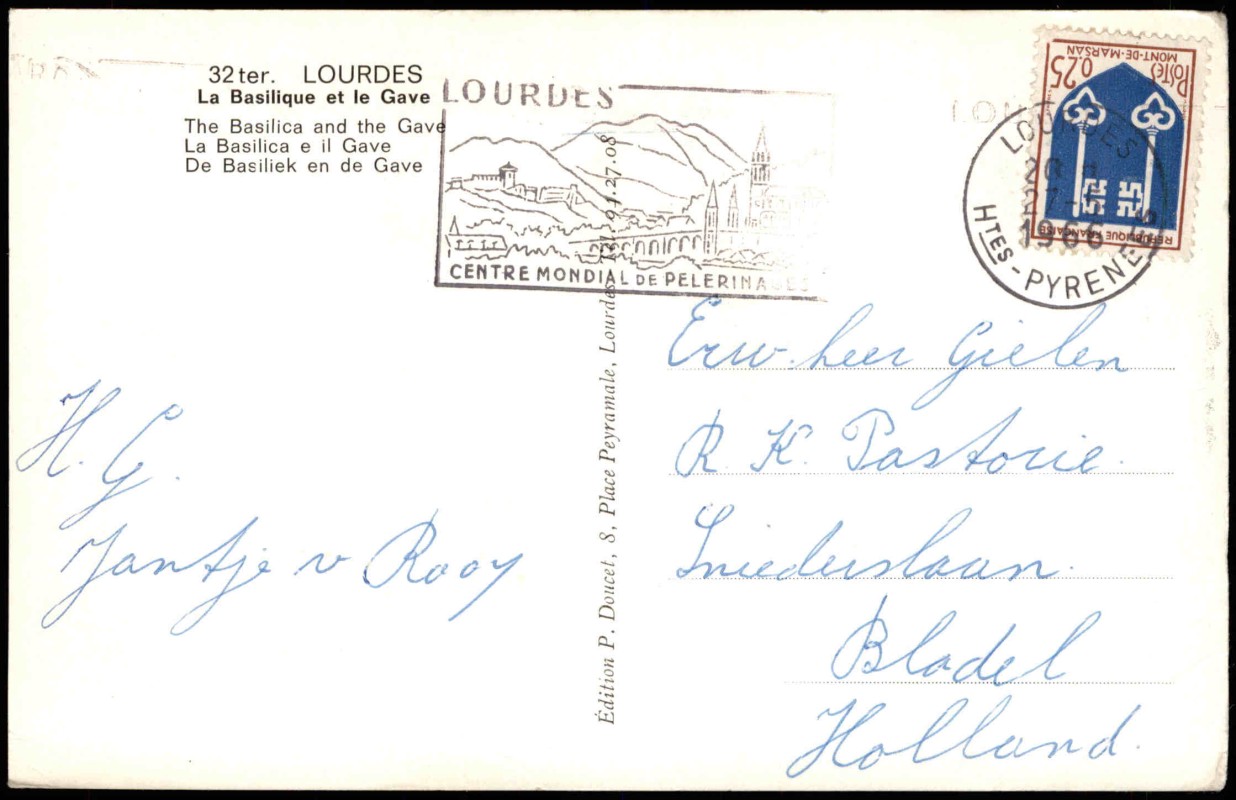 32ter. LOURDES
La Basilique et le Gave
The Basilica and the Gave
La Basilica e il Gave
De Basiliek en de Gave
LOURDES
CENTRE MONDIAL DE PELERINAGES
POSTES 0,25
MONT-DE-MARSAN
REPUBLIQUE FRANÇAISE
LOURDES
27-5
1966
HTES-PYRENEES
Édition P. Doucet, 8, Place Peyramale, Lourdes Tél. 94.27.08
H. G.
Jantje v Rooy
Erw. heer Gielen
R. K. Pastorie.
Sniederslaan.
Bladel
Holland.